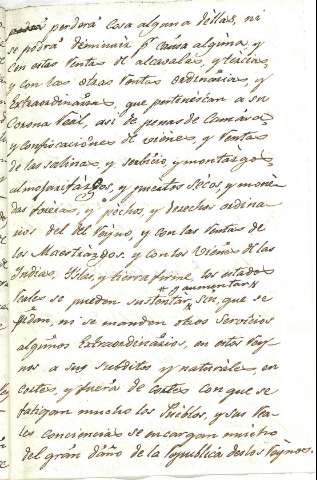 perderá cosa alguna dellas, ni
se podrá diminuir pr causa alguna, y
con estas Rentas de alcavalas, y tercias,
y con las otras Rentas ordinarias, y
Extraordinarias, que pertenescan a su
Corona Real, asi de penas de Camara
y confiscaciones de vienes, y Rentas
de las salinas, y servicio, y montazgo,
almojarifazgos, y puertos secos, y mone-
das foreras, y pechos, y derechos ordina-
rios del Reyno, y con las Rentas de
los Maestrazgos, y con los vienes de las
Indias, Yslas, y tierra firme, los estados
y aumentar
Reales se pueden sustentar, sin que se
pidan, ni se manden otros servicios
algunos Extraordinarios, en estos Rey-
nos a sus subditos y naturales, en
cortes, y fuera de cortes con que se
fatigan mucho los Pueblos, y sus Rea-
les conciencias se encargan mucho
del gran daño de la Republica destos Reynos.